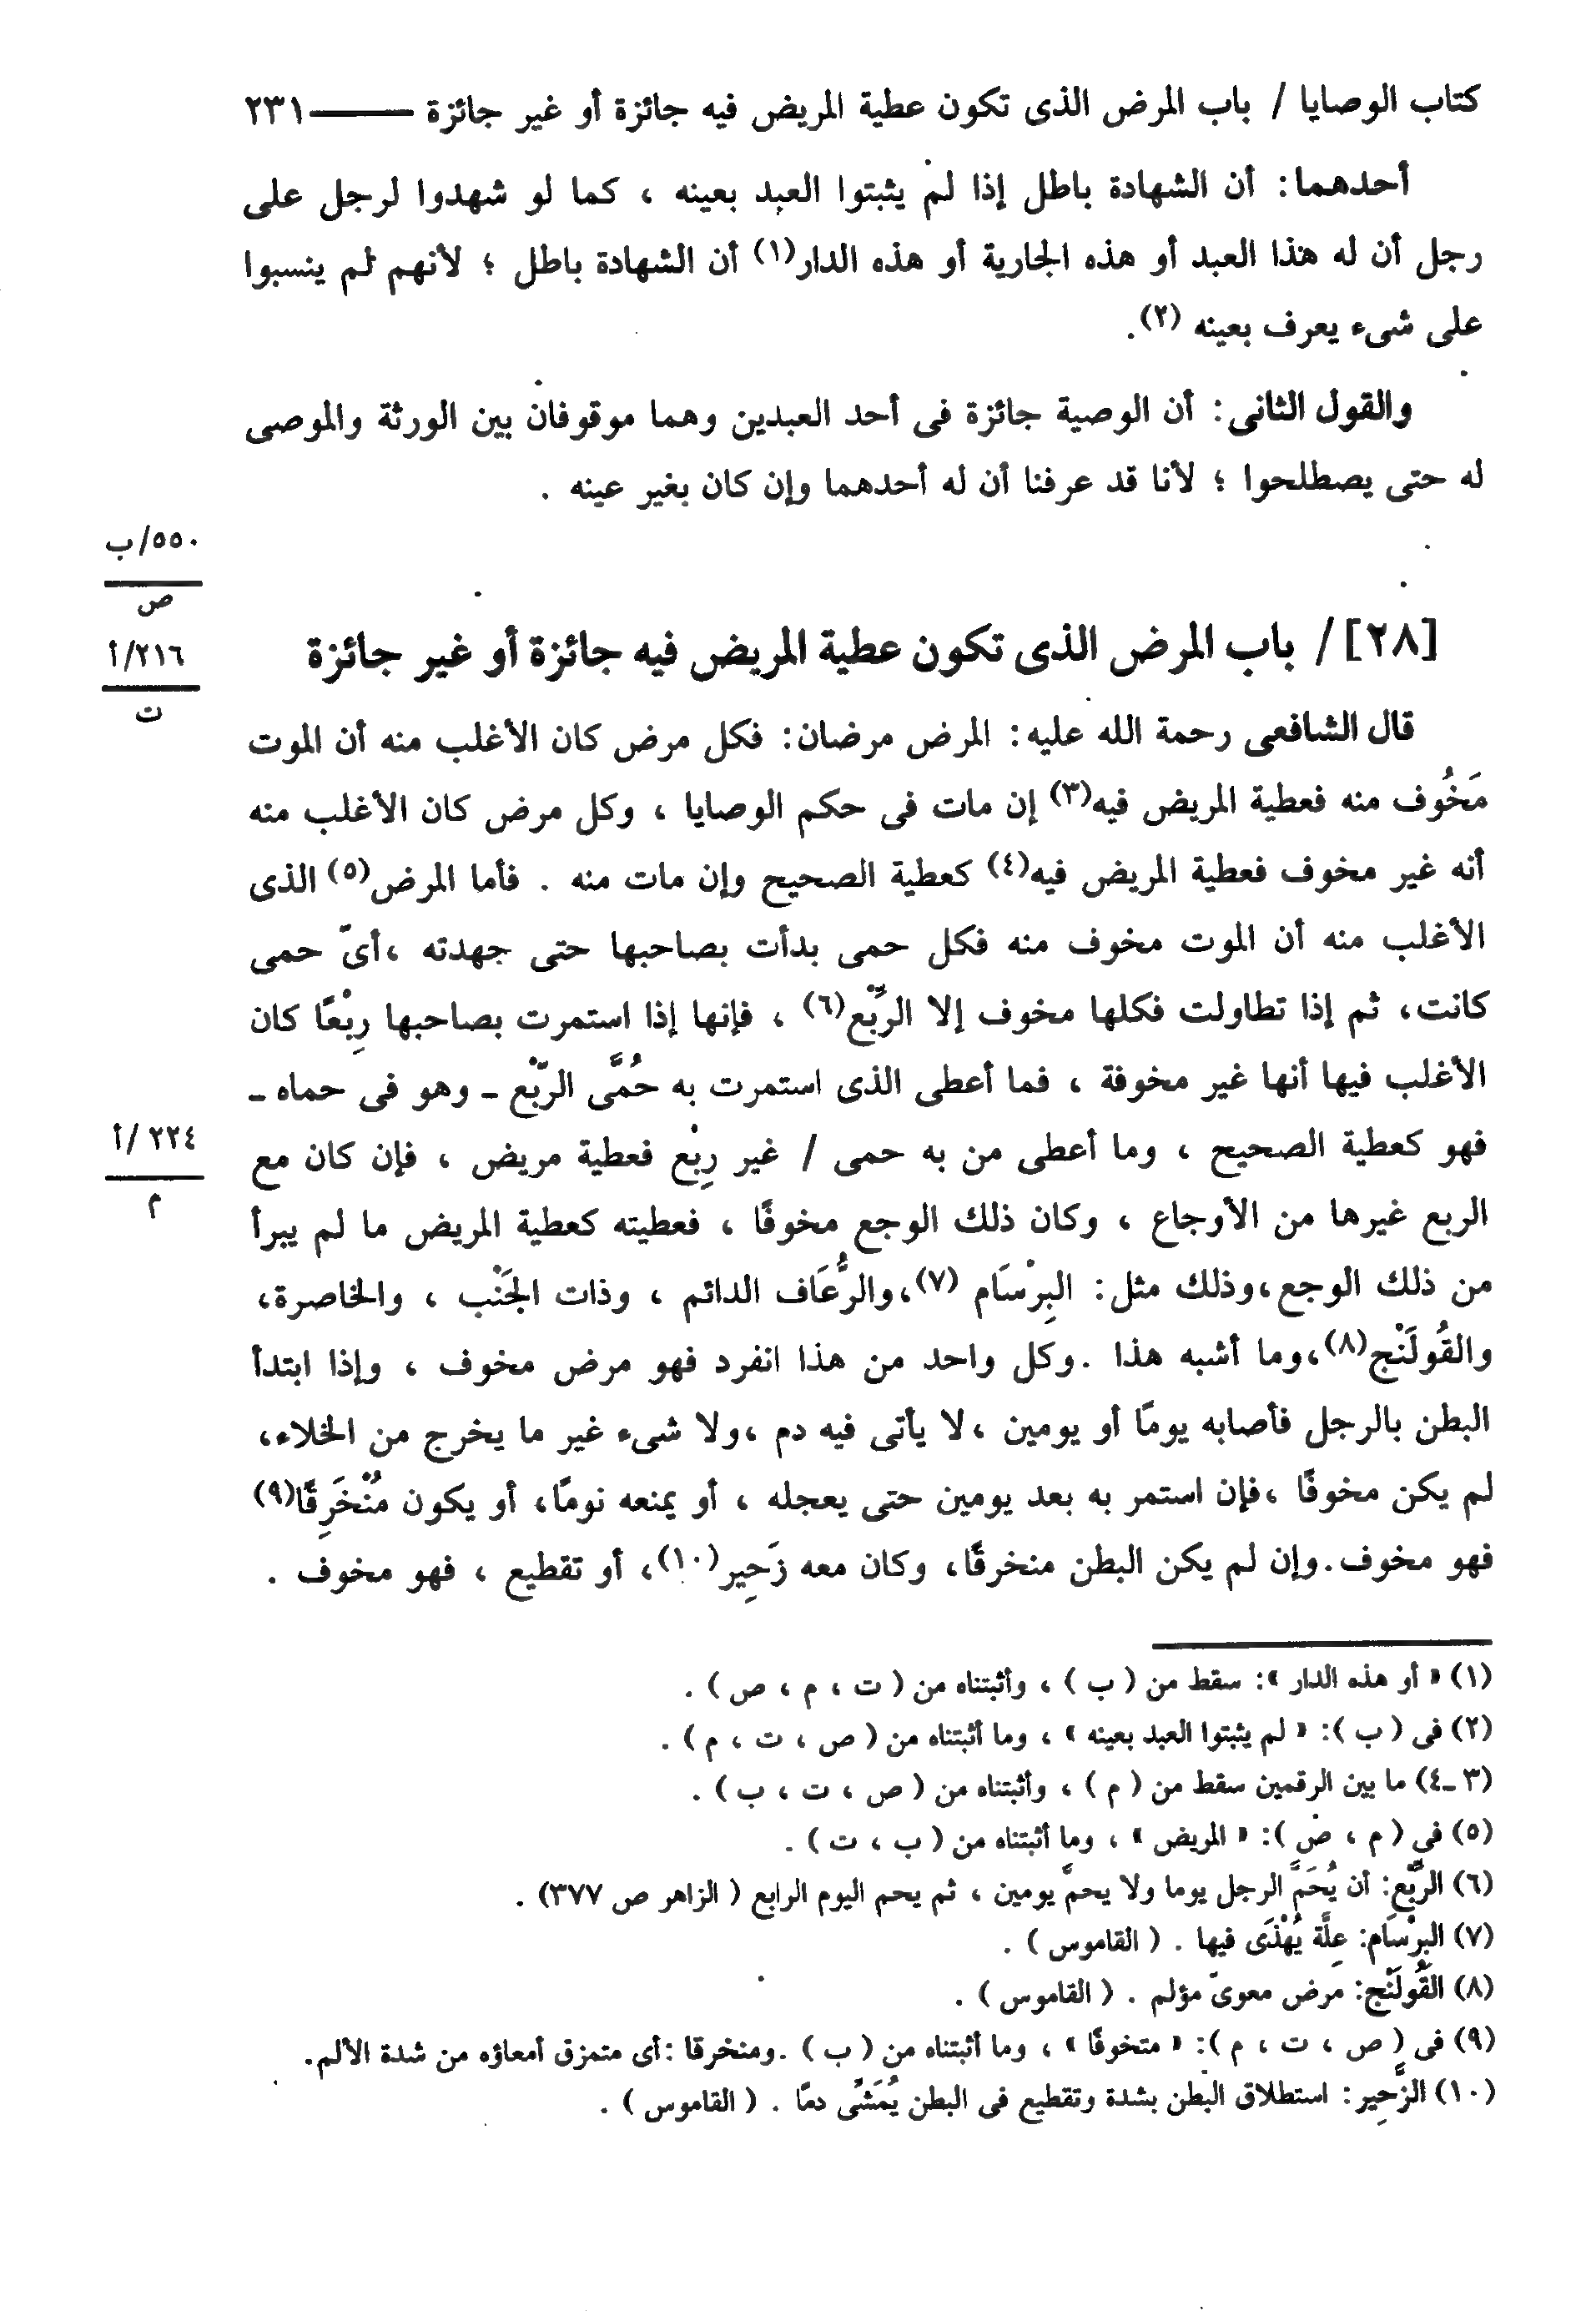 كتاب الوصايا / باب المرض الذى تكون عطية المريض فيه جائزة أو غير جائزة ــــــ ٢٣١
أحدهما: أن الشهادة باطل إذا لم يثبتوا العبد بعينه ، كما لو شهدوا لرجل على
رجل أن له هذا العبد أو هذه الجارية أو هذه الدار(١) أن الشهادة باطل ؛ لأنهم لم ينسبوا
على شىء يعرف بعينه (٢).
والقول الثانى: أن الوصية جائزة فى أحد العبدين وهما موقوفان بين الورثة والموصى
له حتى يصطلحوا ؛ لأنا قد عرفنا أن له أحدهما وإن كان بغير عينه .
٥٥٠/ب
ص
[٢٨] / باب المرض الذى تكون عطية المريض فيه جائزة أو غير جائزة
٢١٦/أ
ت
قال الشافعى رحمة الله عليه: المرض مرضان: فكل مرض كان الأغلب منه أن الموت
مَخُوف منه فعطية المريض فيه(٣) إن مات فى حكم الوصايا ، وكل مرض كان الأغلب منه
أنه غير مخوف فعطية المريض فيه(٤) كعطية الصحيح وإن مات منه . فأما المرض(٥) الذى
الأغلب منه أن الموت مخوف منه فكل حمى بدأت بصاحبها حتى جهدته ،أىّ حمى
كانت، ثم إذا تطاولت فكلها مخوف إلا الرِّبْع(٦) ، فإنها إذا استمرت بصاحبها رِبْعًا كان
الأغلب فيها أنها غير مخوفة ، فما أعطى الذى استمرت به حُمَّى الرّبْع ـ وهو فى حماه ـ
فهو كعطية الصحيح ، وما أعطى من به حمى / غير رِبْع فعطية مريض ، فإن كان مع
٢٢٤ /أ
م
الربع غيرها من الأوجاع ، وكان ذلك الوجع مخوفًا ، فعطيته كعطية المريض ما لم يبرأ
من ذلك الوجع،وذلك مثل: البِرْسَام (٧)،والرُّعَاف الدائم ، وذات الجَنْب ، والخاصرة،
والقُولَنْج(٨)،وما أشبه هذا .وكل واحد من هذا انفرد فهو مرض مخوف ، وإذا ابتدأ
البطن بالرجل فأصابه يومًا أو يومين ،لا يأتى فيه دم ،ولا شىء غير ما يخرج من الخلاء،
لم يكن مخوفًا ،فإن استمر به بعد يومين حتى يعجله ، أو يمنعه نومًا، أو يكون مُنْخَرِقًا(٩)
فهو مخوف.وإن لم يكن البطن منخرقًا، وكان معه زَحِير(١٠)، أو تقطيع ، فهو مخوف .
(١) « أو هذه الدار »: سقط من ( ب ) ، وأثبتناه من ( ت ، م ، ص ) .
(٢) فى ( ب ): « لم يثبتوا العبد بعينه » ، وما أثبتناه من ( ص ، ت ، م ) .
(٣ ـ٤) ما بين الرقمين سقط من ( م ) ، وأثبتناه من ( ص ، ت ، ب ) .
(٥) فى ( م ، ص ): « المريض » ، وما أثبتناه من ( ب ، ت ) .
(٦) الرِّبْع: أن يُحَمَّ الرجل يوما ولا يحمّ يومين ، ثم يحم اليوم الرابع ( الزاهر ص ٣٧٧) .
(٧) البِرْسَام: عِلَّة يُهْذَى فيها . ( القاموس ) .
(٨) القُولَنْج: مرض معوىّ مؤلم . ( القاموس ) .
(٩) فى ( ص ، ت ، م ): « متخوفًا » ، وما أثبتناه من ( ب ) .ومنخرقا :أى متمزق أمعاؤه من شدة الألم.
(١٠) الزَّحِير: استطلاق البطن بشدة وتقطيع فى البطن يُمَشِّى دمًا . ( القاموس ) .